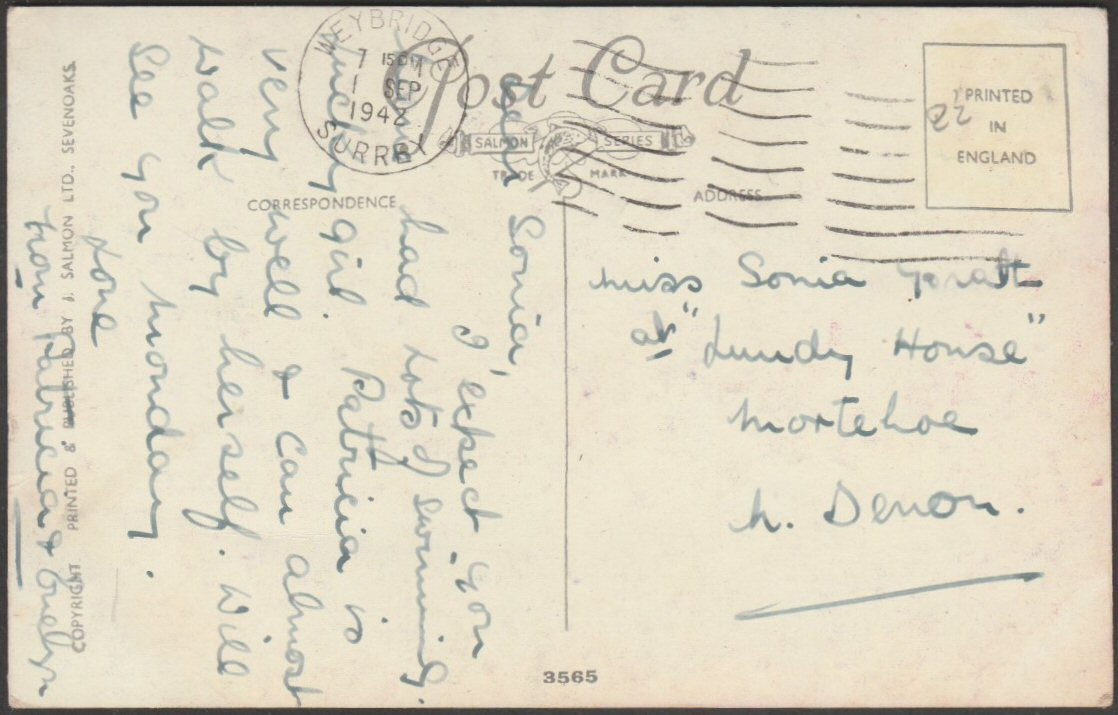 WEYBRIDGE
7 15 PM
1 SEP
1942
SURREY
Post Card
SALMON SERIES
TRADE MARK
PRINTED
IN
ENGLAND
22
CORRESPONDENCE
ADDRESS
Dear Sonia,
I expect you
have had lots of swimming.
Lucky girl. Patricia is
very well & can almost
walk by herself. Will
see you Monday.
Love
from Patricia & Evelyn
Miss Sonia
at "Lundy House"
Mortehoe
N. Devon.
COPYRIGHT PRINTED & PUBLISHED BY J. SALMON LTD., SEVENOAKS.
3565